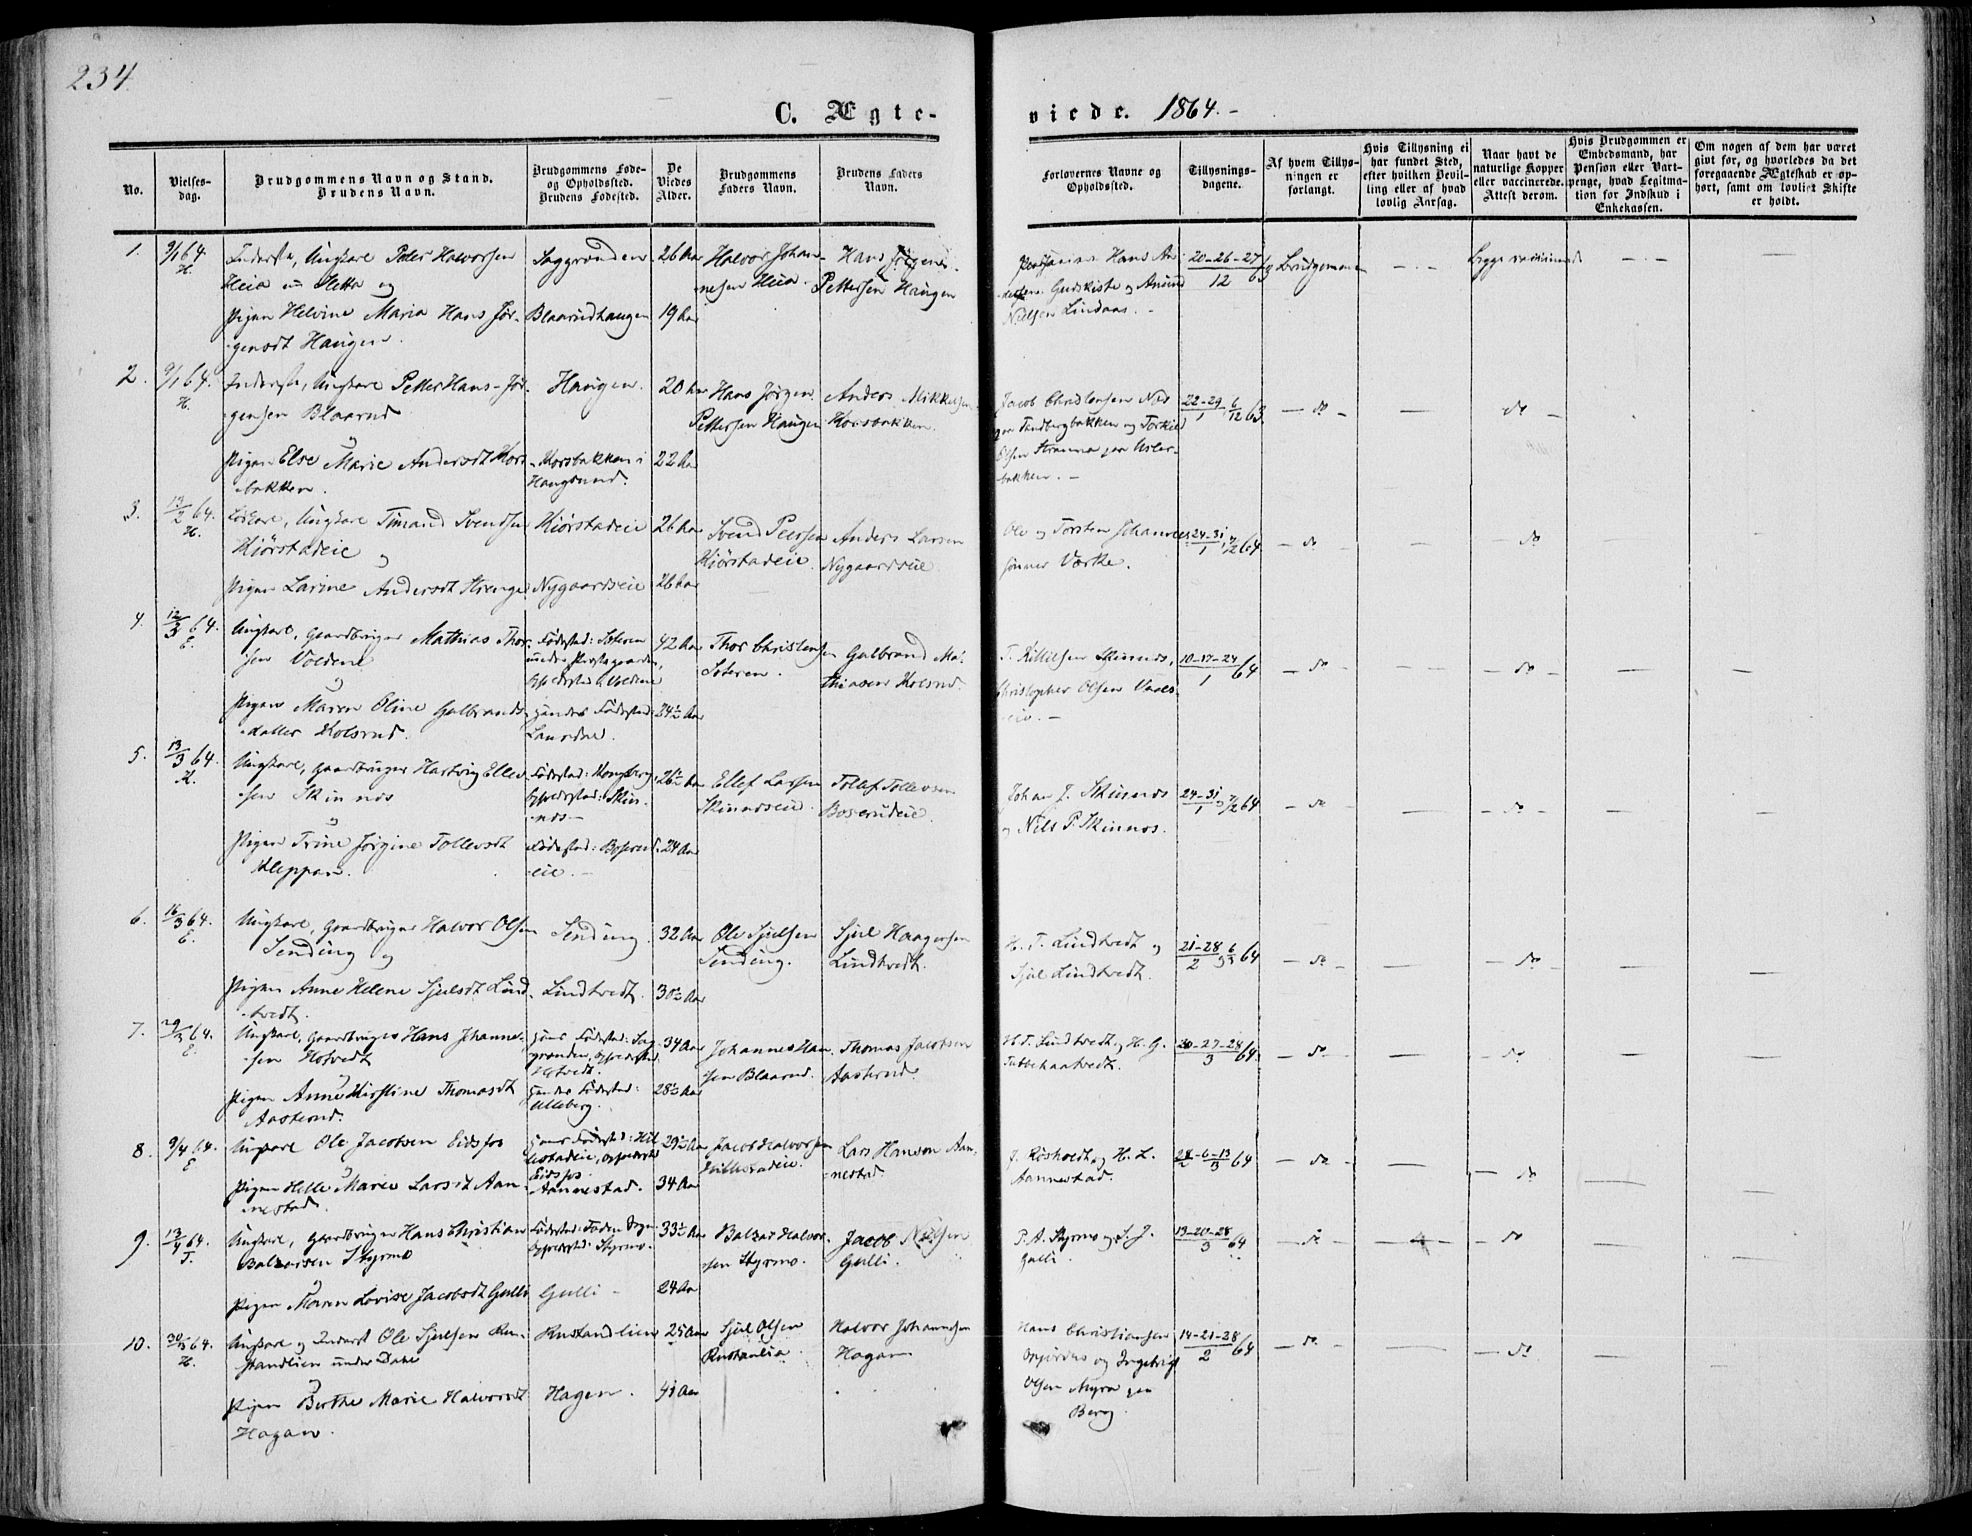 234
C. Ægte-
viede. 1864.-
No.
Vielses-
dag.
Brudgommens Navn og Stand.
Brudens Navn.
Brudgommens Føde-
og Opholdssted.
Brudens Fødested.
De
Viedes
Alder.
Brudgommens
Faders Navn.
Brudens Faders
Navn.
Forlovernes Navne og
Opholdssted.
Tillysnings-
dagene.
Af hvem Tillys-
ningen er
forlangt.
Hvis Tillysning ei
har fundet Sted,
efter hvilken Bevil-
ling eller af hvad
lovlig Aarsag.
Naar havt de
naturlige Kopper
eller vaccinerede.
Attest derom.
Hvis Brudgommen er
Embedsmand, har
Pension eller Vart-
penge, hvad Legitima-
tion for Indskud i
Enkekassen.
Om nogen af dem har været
givt før, og hvorledes da det
foregaaende Ægteskab er op-
hørt, samt om lovligt Skifte
er holdt.
1. 9/1 64. H.
Inderst, Ungkarl Peder Halvorsen
Heia og
Pigen Helvine Maria Hans Jør-
gensdt Haugen.
Saggrenden 26 Aar
Blaarudhaugen 19 Aar
Halvor Johan-
nesen Heia.
Hans Jørgen
Pettersen Haugen
Hans An-
dersen Gudskiste og Amund
Nielsen Lindaas. -
20-26-27/12 63 Brudgommen - Begge vaccinerede -
2. 9/1 64. H.
Inderst, Ungkarl Petter Hans-Jør-
gensen Blaarud
og
Pigen Else Marie Andersdt Kors-
bakken.
Haugen. 20 Aar
Korsbakken i
Haugsund. 22 Aar
Hans Jørgen
Pettersen Haugen
Anders Mikkelsen
Korsbakken.
Jacob Christensen
Tandbergbakken og Torkild
Olsen
bakken. -
22-29/1, 6/12 63. - do - - do -
3. 13/2 64. H.
Ungkarl Timand Svendsen
Kiørstadeie og
Pigen Larine Andersdt Strenge
Kiørstadeie 26 Aar
Nygaardseie 26 Aar
Svend Peersen
Kiørstadeie.
Anders Larsen
Nygaardseie
Ole og Torsten Johannes-
sønner Værke.
24-31/1, 7/2 64 - do - - do -
4. 12/3 64. E.
Ungkarl, Gaardbruger Mathias Thor-
sen Voldene
og
Pigen Maren Oline Gulbrands-
datter Kolsrud.
Fødested: Soteren
under Præstegaarden,
Opholdssted: Voldene 42 Aar
hendes Fødested:
24½ Aar
Thor Christensen
Soteren.
Gulbrand Ma-
thiasen Kolsrud.
T. Kittelsen Skinnes,
Christopher Olsen
10-17-24/1 64 - do - - do -
5. 13/3 64. H.
Ungkarl, Gaardbruger Hartvig Ellev-
sen Skinnes
og
Pigen Trine Jørgine Tollevsdt
Kleppan.
Fødested: Kongsberg,
Opholdssted: Skin-
nes - 26½ Aar
Fødested: Boserud-
eie. - 24 Aar
Ellef Larsen
Skinneseie.
Tollef Tollevsen
Boserudeie.
Johan J. Skinnes
og Nils P. Skinnes.
24-31/1, 7/2 64 - do - - do -
6. 16/3 64. E.
Ungkarl, Gaardbruger Halvor Olsen
Sending og
Pigen Anne Helene Sjulsdt Lind-
tvedt.
Sending. 32 Aar
Lindtvedt. 30½ Aar
Ole Sjulsen
Sending.
Sjul Haagensen
Lindtvedt.
H. T. Lindtvedt og
Sjul Lindtvedt.
21-28/2, 6/3 64 - do - - do -
7. 29/3 64. E.
Ungkarl, Gaardbruger Hans Johanne-
sen Hotvedt
og
Pigen Anne Kirstine Thomasdt
Aasterud.
hans Fødested: Sag-
grenden, Opholdssted
Hotvedt. 34 Aar
hendes Fødested:
Ulleberg. 28½ Aar
Johannes Han-
sen Blaarud.
Thomas Jacobsen
Aasterud.
H. T. Lindtvedt og H. G.
20-27-28/3 64. - do - - do -
8. 9/4 64. E
Ungkarl Ole Jacobsen Eidsfos
og
Pigen Helle Marie Larsdt Aan-
nestad.
hans Fødested: Hil-
lestadeie, Opholdssted
Eidsfos. 29½ Aar
Aannestad. 34 Aar
Jacob Halvorsen
Hillestadeie.
Lars Hansen Aan-
nestad.
J. Røsholdt og H. L.
Aannestad.
28/2-6-13/3 64 - do - - do -
9. 13/4 64. T.
Ungkarl, Gaardbruger Hans Christian
Balzersen Styrmo
og
Pigen Maren Lovise Jacobsdt Gulli
Opholdssted: Styrmo. 33½ Aar
Gulli - 24 Aar
Balzer Halvor-
sen Styrmo.
Jacob Nielsen
Gulli.
P. A. Styrmo og S. J.
Gulli.
13-20-28/3 64 - do - - do -
10. H.
Ungkarl og Inderst Ole Sjulsen Ru-
standlien under Dahl
og
Pigen Berthe Marie Halvorsdt
Hagan.
Rustandlien 25 Aar
Hagen. 41 Aar
Sjul Olsen
Rustanlia.
Halvor Johannesen
Hagan
Hans Christiansen
og Ingebrigt
Olsen Myra paa
Berg.
14-21-28/2 64 - do - - do -